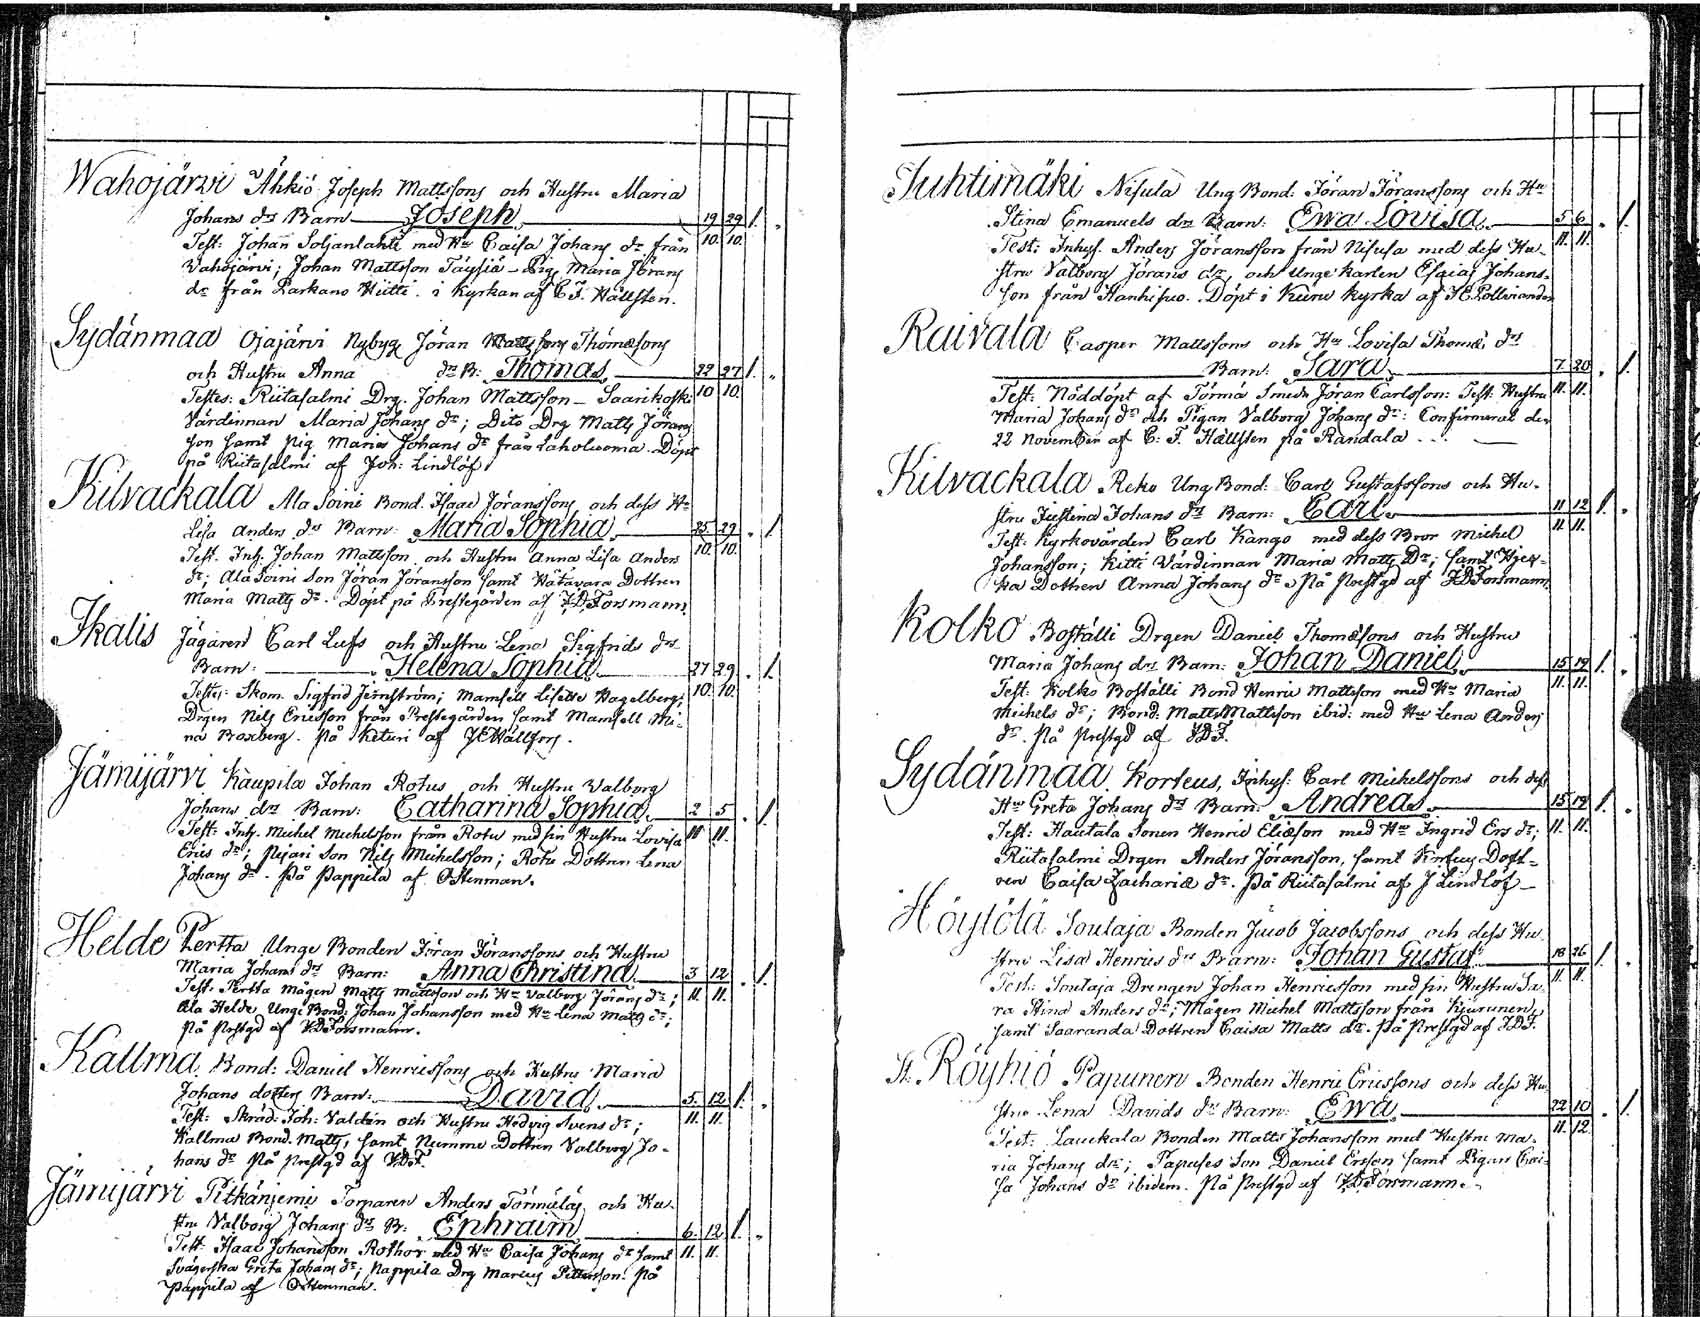 Wahojärvi Ähkiö Joseph Mattssons och Hustru Maria
Johans drs Barn Joseph 19 29 1.
Test: Johan Soljanlahti med Hu Caisa Johans dr från 10. 10.
Vahojärvi; Johan Mattsson Täysiä – Pig. Maria Jörans
dr från Parkano Hütti. i Kyrkan af C. F. Hällsten.
Sydänmaa Ojajärvi Nybyg Jöran Thomæsons
och Hustru Anna drs B: Thomas 22 27 1.
Testes: Riitasalmi Drg. Johan Mattsson – Saarikoski 10 10
Värdinnan Maria Johans dr; Dito Drg Matts Jörans
son samt Pig Maria Johans dr från Laholuoma. Döpt
på Riitasalmi af Joh: Lindlöf
Kilvackala Ala Soini Bond. Isaac Jöranssons och dess Hu
Lisa Anders drs Barn: Maria Sophia 25 29 1.
Test. Inh. Johan Mattsson och Hustru Anna Lisa Anders 10. 10.
dr; Ala Soini Son Jöran Jöransson samt Hatavara Dottren
Maria Matts dr. Döpt på Prestegården af F. D. Forsmann.
Ikalis Jägaren Carl Lufs och Hustru Lena Sigfrids drs
Barn: Helena Sophia 27 29 1.
Testes: Skom. Sigfrid Jernström; Mamsell Lisette Hagelberg; 10. 10.
Drgen Nils Ericsson från Prestegården samt Mamsell Mi-
na Boxberg. På Keturi af
Jämijärvi Kaupila Johan Rotus och Hustru Valborg
Johans drs Barn: Catharina Sophia 2 5 1.
Test: Inh. Michel Michelsson från Rotu med sin Hustru Lovisa 11 11.
Erics dr; Pejari Son Nils Michelsson; Rotu Dottren Lena
Johans dr. På Pappila af O. Stenman.
Helde Pertta Unge Bonden Jöran Jöranssons och Hustru
Maria Johans drs Barn: Anna Christina 3 12 1.
Test. Pertta Mågen Matts Mattsson och Hu Valborg Jörans dr; 11. 11.
Ala Helde Unge Bond: Johan Johansson med Hu Lena Matts dr;
På Prestgd af F. D. Forsmann.
Kallma Bond: Daniel Henricssons och Hustru Maria
Johans dotters Barn: David 5. 12 1.
Test: Skräd: Joh: Valdén och Hustru Hedvig Svens dr; 11. 11.
Kallma Bond. Matts, samt Numme Dottren Valborg Jo-
hans dr På Prestgd af F. D. F.
Jämijärvi Pitkäniemi Torparen Anders Törmäläs och Hu-
stru Valborg Johans drs B: Ephraim 6. 12 1.
Test: Isaac Johansson Rothor med Hu Caisa Johans dr samt 11. 11.
Svägerska Greta Johans dr; Pappila Drg Marcus Pettersson. På
Pappila af O. Stenman.
Juhtimäki Nisula Ung Bond: Jöran Jöranssons och Hu
Stina Emanuels drs Barn: Ewa Lovisa 5 6 1.
Test: Inhys. Anders Jöransson från Nisula med dess Hu- 11. 11.
stru Valborg Jörans dr, och Unge karlen Esaias Johans-
son från Hanhisuo. Döpt i Kuru kyrka af
Raivala Casper Mattssons och Hu Lovisa Thomæ drs
Barn: Sara 7. 20 1.
Test: Nöddöpt af Törmä Smeden Jöran Carlsson: Test: Hustru 11. 11.
Maria Johans dr och Pigan Valborg Johans dr: Confirmerat den
22 November af C: F. Hällsten på Randala
Kilvackala Reko Ung Bond: Carl Gustafssons och Hu-
stru Justina Johans drs Barn: Carl 11 12 1.
Test. Kyrkovärden Carl Kango med dess Bror Michel 11. 11.
Johansson; Kitti Värdinnan Maria Matts Dr; samt
ka Dottren Anna Johans dr. På Prestgd af F. D. Forsmann.
Kolko Boställi Drgen Daniel Thomæsons och Hustru
Maria Johans drs Barn: Johan Daniel 15 19 1.
Test: Kolko Boställi Bond Henric Mattsson med Hu Maria 11. 11.
Michels dr; Bond: Matts Mattsson ibid: med Hu Lena Anders
dr. På Prestgd af F. D. F.
Sydänmaa Korfeus, Inhys: Carl Michelssons och dess
Hu Greta Johans drs Barn: Andreas 15 19 1.
Test: Hautala Sonen Henric Eliæson med Hu Ingrid Ers dr; 11. 11.
Riitasalmi Drgen Anders Jöransson, samt Korfeus Dott-
ren Caisa Zachariæ dr. På Riitasalmi af J Lindlöf
Höytölä Soulaja Bonden Jacob Jacobssons och dess Hu
stru Lisa Henrics drs Barn: Johan Gustaf 18 26 1.
Test: Soulaja Drengen Johan Henricsson med sin Hustru Sa- 11. 11.
ra Stina Anders dr; Mågen Michel Mattsson från Kjurunen,
samt Saaranda Dottren Caisa Matts dr. På Prestgd af F. D. F.
St. Röyhiö Papunen Bonden Henric Ericssons och dess Hu
stru Lena Davids drs Barn: Ewa 22 10 1.
Test: Lauckala Bonden Matts Johansson med Hustru Ma- 11. 12
ria Johans dr; Papuses Son Daniel Ersson samt Pigan Cai-
sa Johans dr ibidem. På Prestgd af F. D. Forsmann.